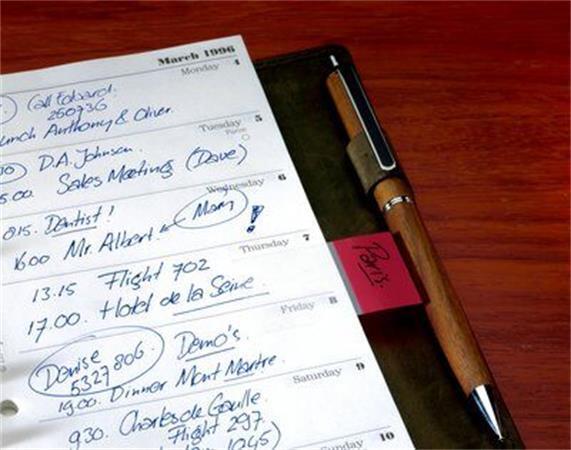 March 1996
Monday 4
Call Edward.
250736
Lunch Anthony & Oliver.
Tuesday 5
D.A. Johnson.
Sales Meeting (Dave)
Wednesday 6
815. Dentist!
Mary
1600 Mr. Albert. !
Thursday 7
13.15 Flight 702
17.00. Hotel de la Seine
Paris.
Friday 8
Denise Demo's.
5327806.
1900. Dinner Mont Martre.
Saturday 9
930. Charles de Gaulle.
Flight 297.
1245)
Sunday 10